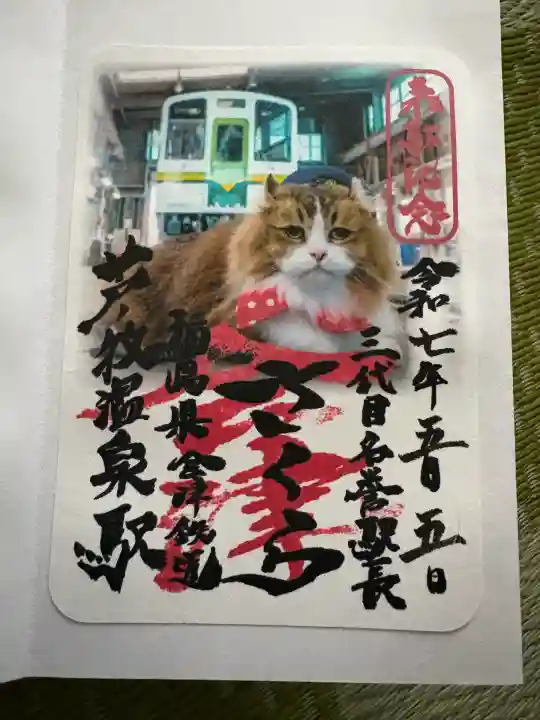 来駅記念
令和七年五月五日
三代目名誉駅長
さくら
福島県会津鉄道
芦牧温泉駅